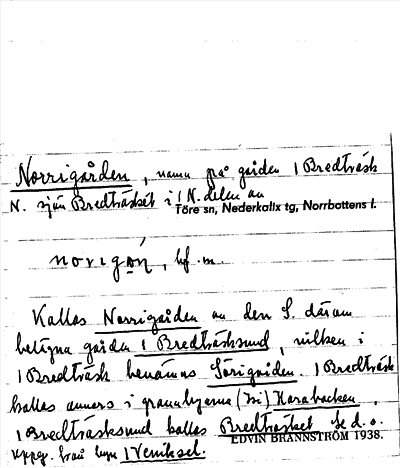 Norrigården, namn på gården 1 Bredträsk
N. sjön Bredträsket i N. delen av
Töre sn, Nederkalix tg, Norrbottens l.
norigǫn, bf. m.
Kallas Norrigården av den S. därom
belägna gården 1 Bredträsksund, vilken i
1 Bredträsk benämnes Sörigården. 1 Bredträsk
kallas annars i grannbyarna Harabacken.
1 Bredträsksund kallas Bredträsket se d.o.
Uppg. från byn 1 Veniksel.
EDVIN BRÄNNSTRÖM 1938.